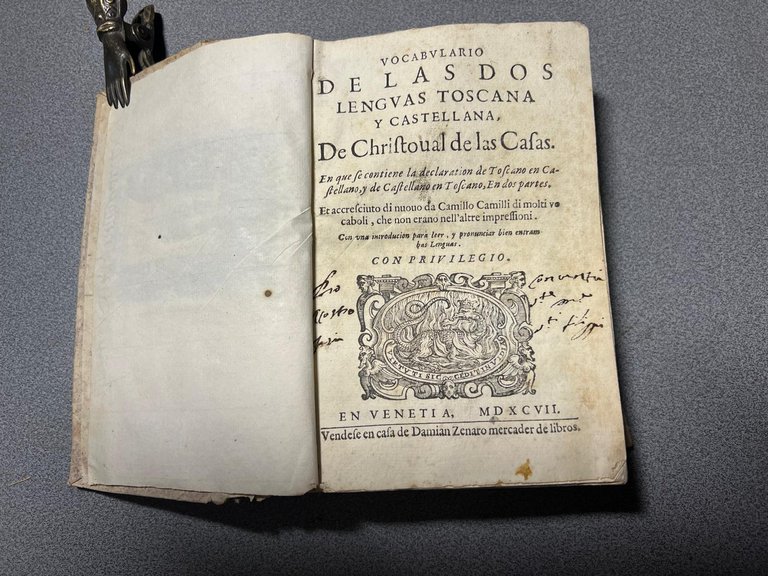 VOCABVLARIO
DE LAS DOS
LENGVAS TOSCANA
Y CASTELLANA,
De Chriſtoual de las Caſas.
En que ſe contiene la declaration de Toſcano en Ca-
ſtellano, y de Caſtellano en Toſcano, En dos partes.
Et accreſciuto di nuouo da Camillo Camilli di molti vo
caboli, che non erano nell'altre impreſſioni.
Con vna introducion para leer, y pronunciar bien entram
bas Lenguas.
CON PRIVILEGIO.
VIRTVTI SIC CEDIT INVIDIA
EN VENETIA, MDXCVII.
Vendeſe en caſa de Damian Zenaro mercader de libros.